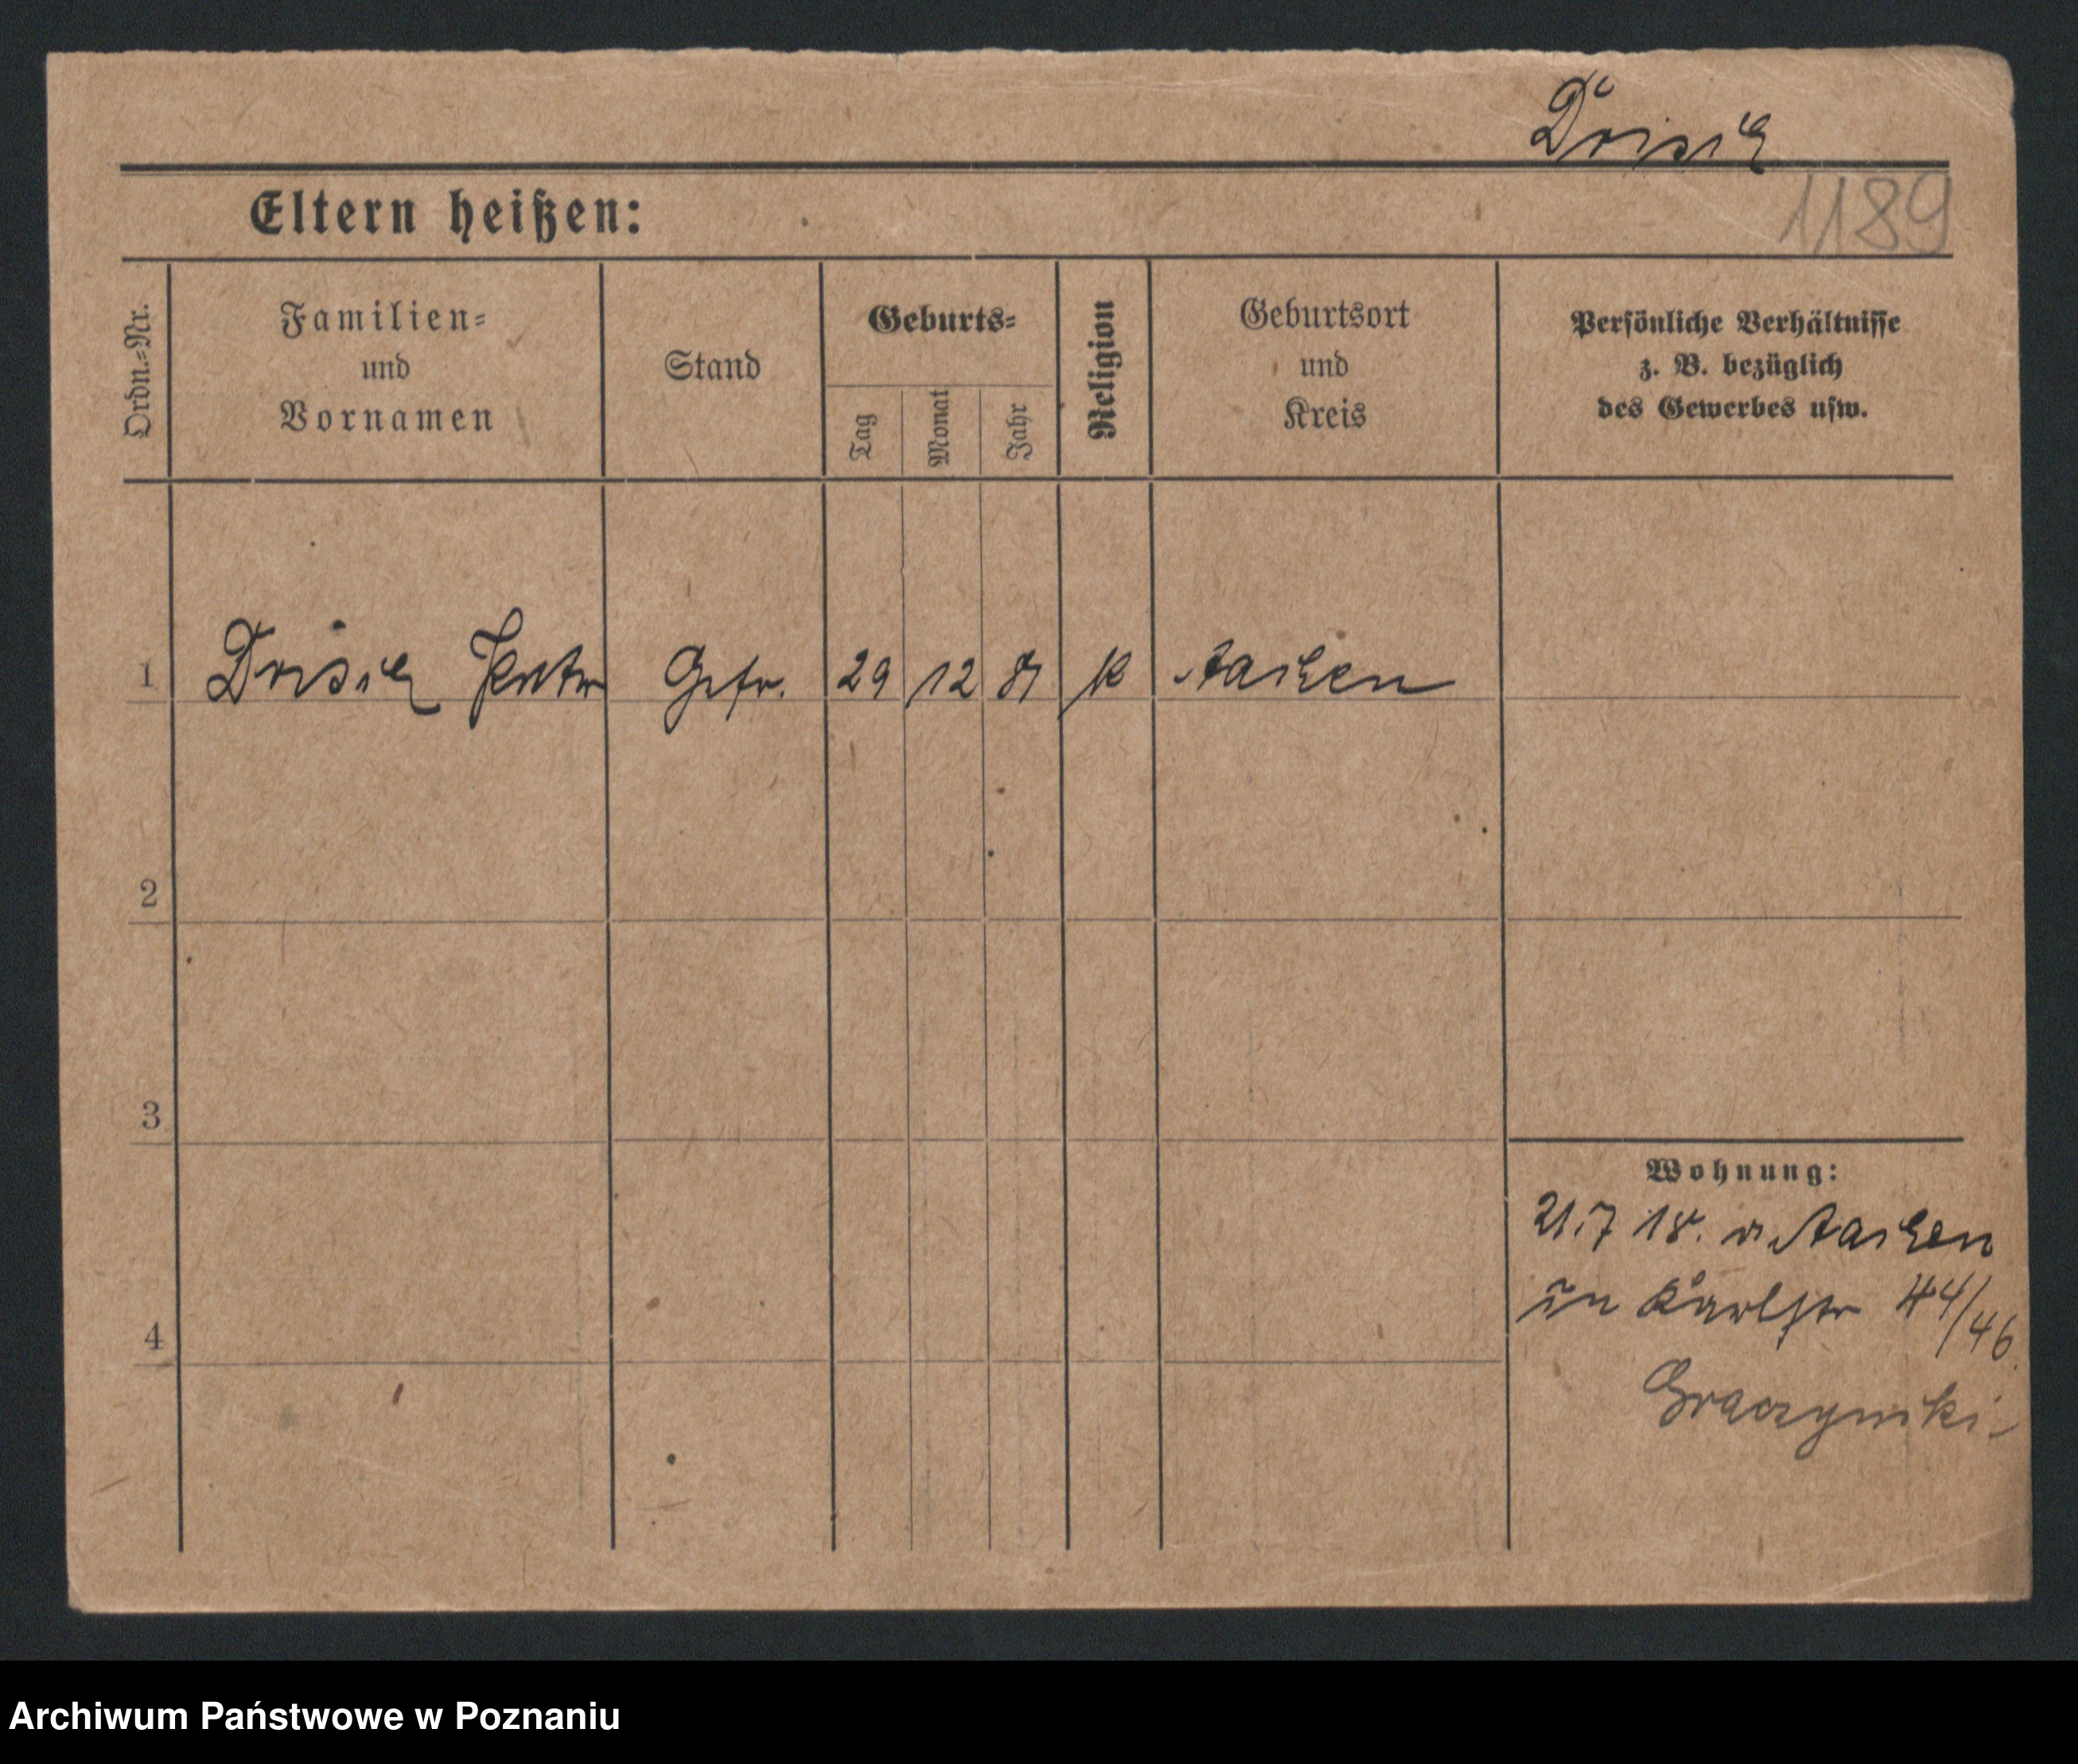 Drisch
Eltern heißen:
1189
Ordn.=Nr.
Familien=
und
Vornamen
Stand
Geburts=
Tag
Monat
Jahr
Religion
Geburtsort
und
Kreis
Persönliche Verhältnisse
z. B. bezüglich
des Gewerbes usw.
1 Drisch Gefr. 29 12 K Aachen
2
3
4
Wohnung:
21.7 18. v. Aachen
in Karlstr 44/46.
Graczynski
Archiwum Państwowe w Poznaniu